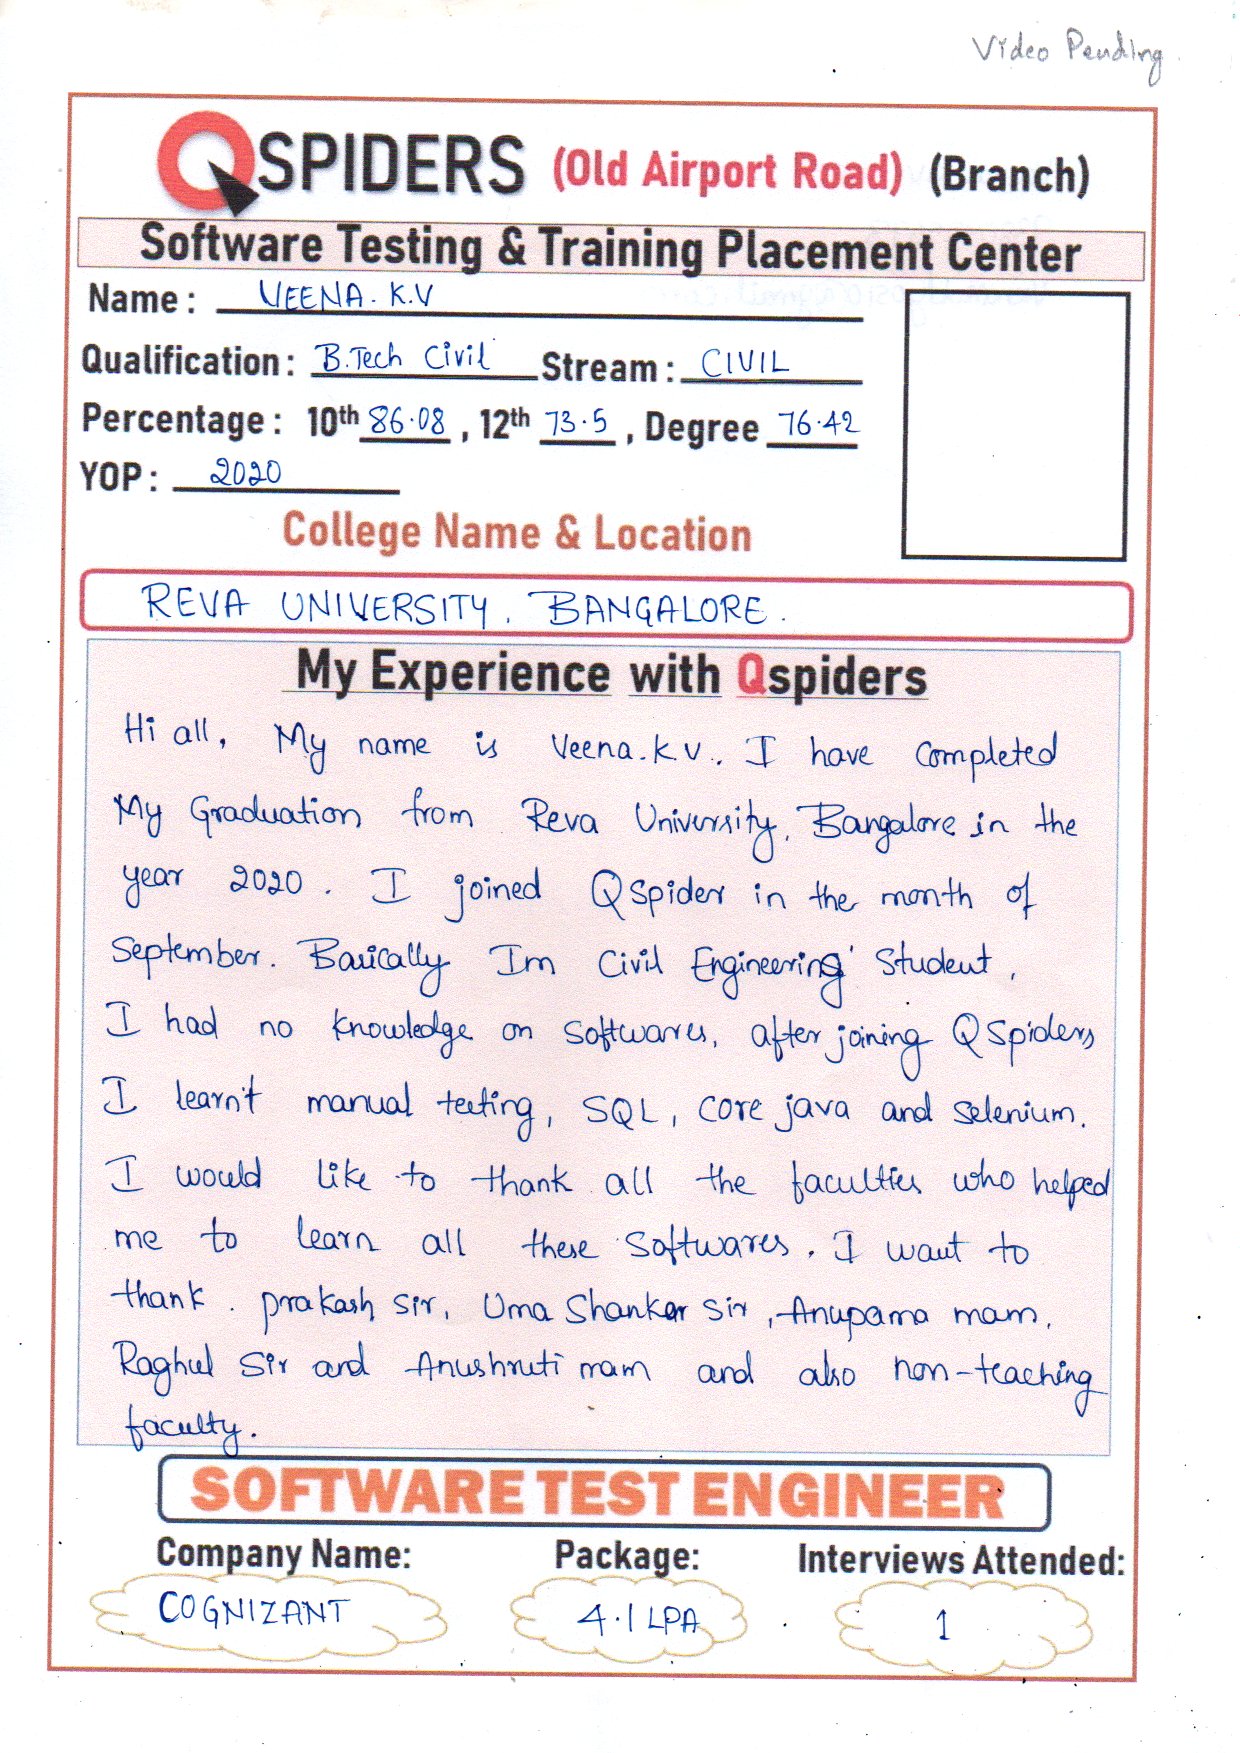 Video Pending
QSPIDERS (Old Airport Road) (Branch)
Software Testing & Training Placement Center
Name : VEENA. K.V
Qualification : B.Tech Civil Stream : CIVIL
Percentage : 10th 86.08 , 12th 73.5 , Degree 76.42
YOP : 2020
College Name & Location
REVA UNIVERSITY, BANGALORE.
My Experience with Qspiders
Hi all, My name is Veena.K.V.. I have completed
My Graduation from Reva University, Bangalore in the
year 2020. I joined QSpider in the month of
September. Basically Im Civil Engineering Student,
I had no knowledge on softwares, after joining QSpiders
I learn't manual testing, SQL, core java and selenium.
I would like to thank all the faculties who helped
me to learn all these softwares. I want to
thank. prakash sir, Uma Shankar sir, Anupama mam,
Raghul Sir and Anushruti mam and also non-teaching
faculty.
SOFTWARE TEST ENGINEER
Company Name: Package: Interviews Attended:
COGNIZANT 4.1 LPA 1